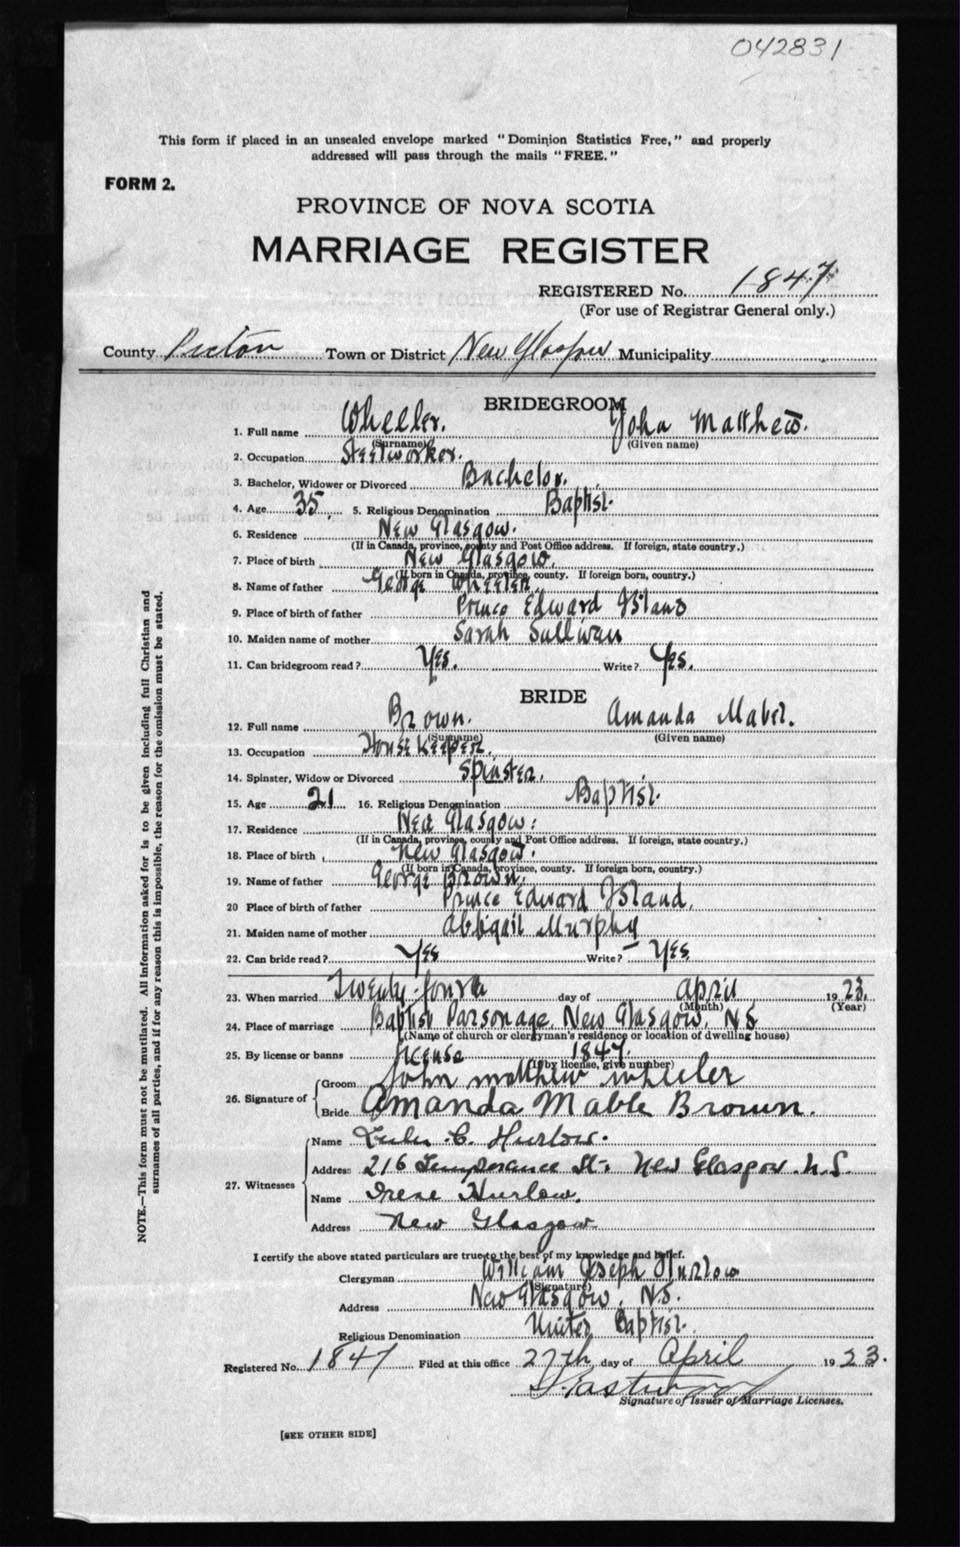 042831
This form if placed in an unsealed envelope marked "Dominion Statistics Free," and properly
addressed will pass through the mails "FREE."
FORM 2.
PROVINCE OF NOVA SCOTIA
MARRIAGE REGISTER
REGISTERED No. 1847
(For use of Registrar General only.)
County Pictou Town or District New Glasgow Municipality
BRIDEGROOM
1. Full name Wheeler. John Matthew.
(Surname) (Given name)
2. Occupation Steelworker.
3. Bachelor, Widower or Divorced Bachelor.
4. Age 35 5. Religious Denomination Baptist.
6. Residence New Glasgow.
(If in Canada, province, county and Post Office address. If foreign, state country.)
7. Place of birth New Glasgow.
(If born in Canada, province, county. If foreign born, country.)
8. Name of father George Wheeler.
9. Place of birth of father Prince Edward Island
10. Maiden name of mother Sarah Sullivan
11. Can bridegroom read? Yes. Write? Yes.
BRIDE
12. Full name Brown. Amanda Mabel.
(Surname) (Given name)
13. Occupation House Keeper.
14. Spinster, Widow or Divorced Spinster.
15. Age 21 16. Religious Denomination Baptist.
17. Residence New Glasgow.
(If in Canada, province, county and Post Office address. If foreign, state country.)
18. Place of birth New Glasgow.
(If born in Canada, province, county. If foreign born, country.)
19. Name of father George Brown.
20 Place of birth of father Prince Edward Island.
21. Maiden name of mother Abbigail Murphy
22. Can bride read? Yes Write? Yes
23. When married Twenty-fourth day of April 1923.
(Month) (Year)
24. Place of marriage Baptist Parsonage, New Glasgow, N.S
(Name of church or clergyman's residence or location of dwelling house)
25. By license or banns License 1847.
(If by license, give number)
26. Signature of
Groom John Matthew Wheeler
Bride Amanda Mable Brown.
27. Witnesses
Name C. Hurlow.
Address 216 Temperance St. New Glasgow. N.S.
Name Irene Hurlow.
Address New Glasgow
I certify the above stated particulars are true to the best of my knowledge and belief.
Clergyman William Joseph Hurlow
(Signature)
Address New Glasgow, N.S.
Religious Denomination United Baptist.
Registered No. 1847 Filed at this office 27th day of April 1923.
Signature of Issuer of Marriage Licenses.
[SEE OTHER SIDE]
NOTE.—This form must not be mutilated. All information asked for is to be given including full Christian and
surnames of all parties, and if for any reason this is impossible, the reason for the omission must be stated.